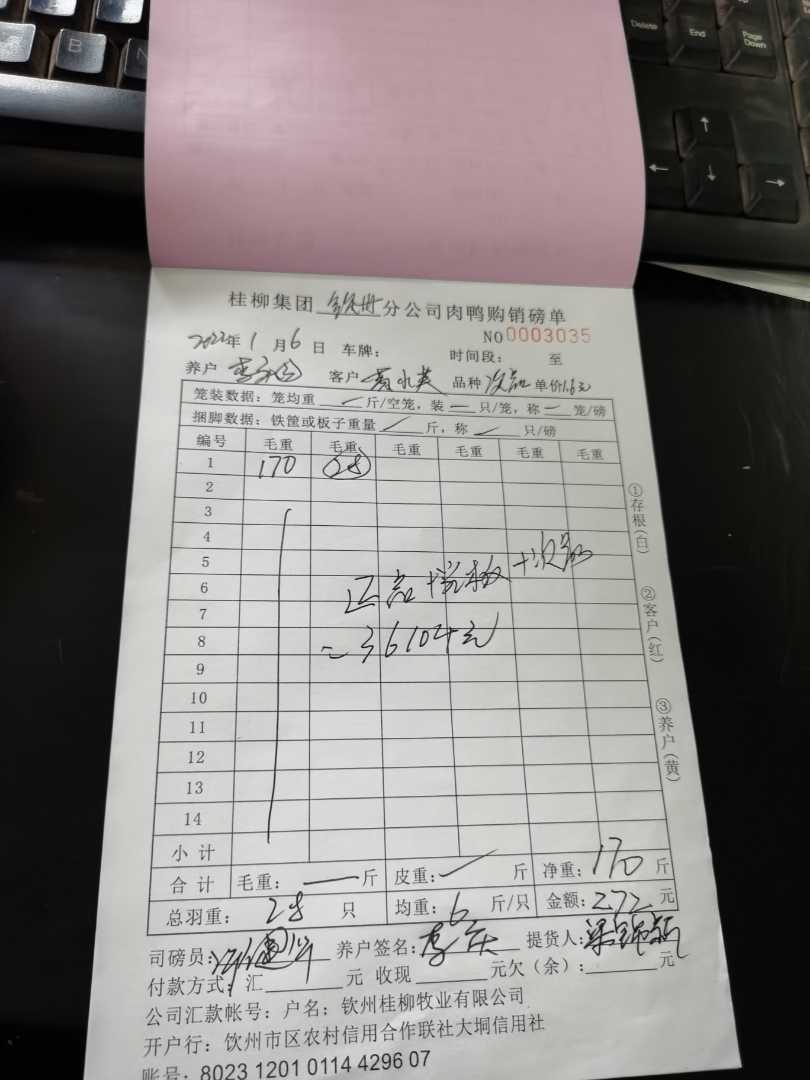 Delete
End
Page Down
B
N
桂柳集团 钦州 分公司肉鸭购销磅单
NO 0003035
2022年 1 月 6 日 车牌： 时间段： 至
养户 客户 黄水英 品种 次品 单价1.6元
笼装数据：笼均重 一 斤/空笼，装 一 只/笼，称 一 笼/磅
捆脚数据：铁筐或板子重量 斤，称 只/磅
编号 毛重 毛重 毛重 毛重 毛重 毛重
1 170 28
2
3
4
5
6
7
8
9
10
11
12
13
14
正品+烂板+次品
=36104元
小 计
合 计 毛重：一斤 皮重： 斤 净重：170 斤
总羽重： 28 只 均重：6 斤/只 金额：272 元
司磅员： 养户签名： 提货人：
付款方式：汇 元 收现 元欠（余）： 元
公司汇款帐号：户名：钦州桂柳牧业有限公司
开户行：饮州市区农村信用合作联社大垌信用社
账号：8023 1201 0114 4296 07
①存根(白)
②客户(红)
③养户(黄)